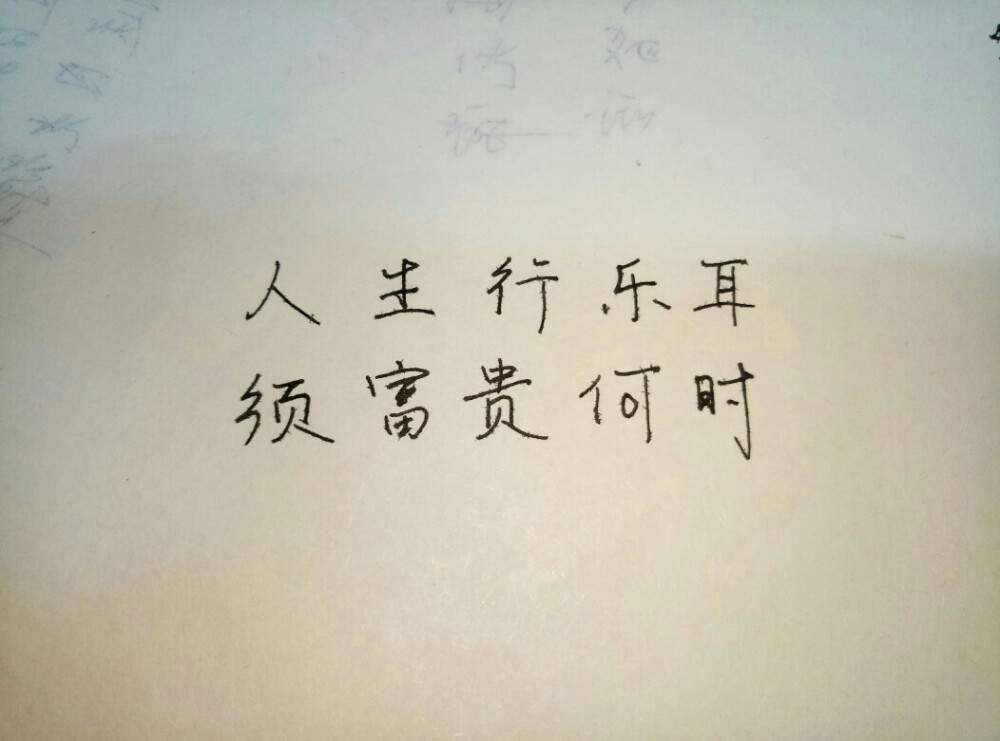 人生行乐耳
须富贵何时